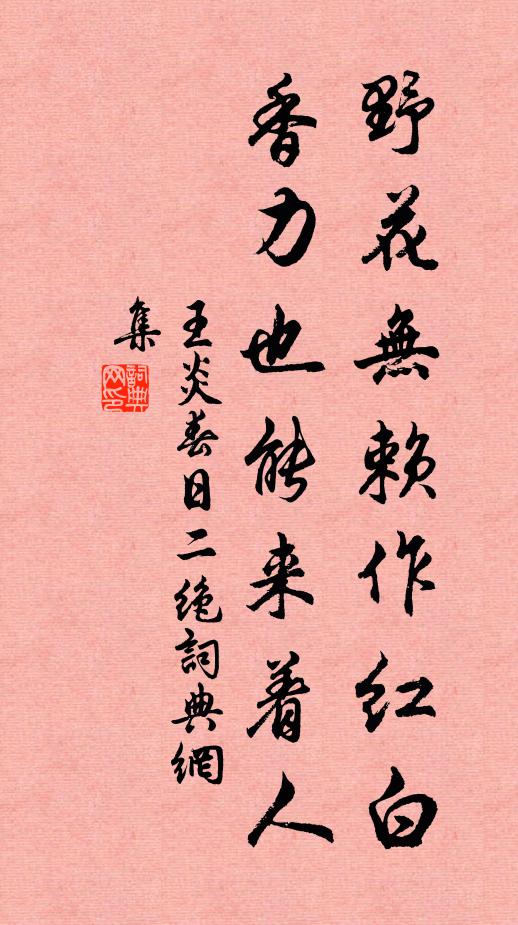 野花無賴作红白
香力也能来着人
王炎春日二绝詞典網
集
詞典网印